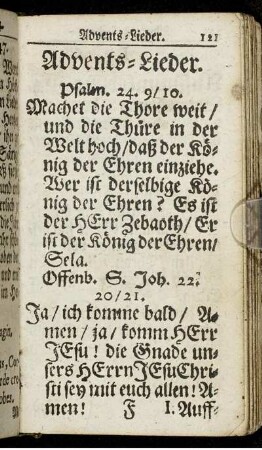 Advents-Lieder. 121
Advents-Lieder.
Psalm. 24. 9/10.
Machet die Thore weit/
und die Thüre in der
Welt hoch/daß der Kö-
nig der Ehren einziehe.
Wer ist derselbige Kö-
nig der Ehren? Es ist
der HErr Zebaoth/Er
ist der König der Ehren/
Sela.
Offenb. S. Joh. 22.
20/21.
Ja/ich komme bald/ A-
men/ja/komm HErr
JEsu! die Gnade un-
sers HErrn JEsu Chri-
sti sey mit euch allen! A-
men! F 1. Auff-